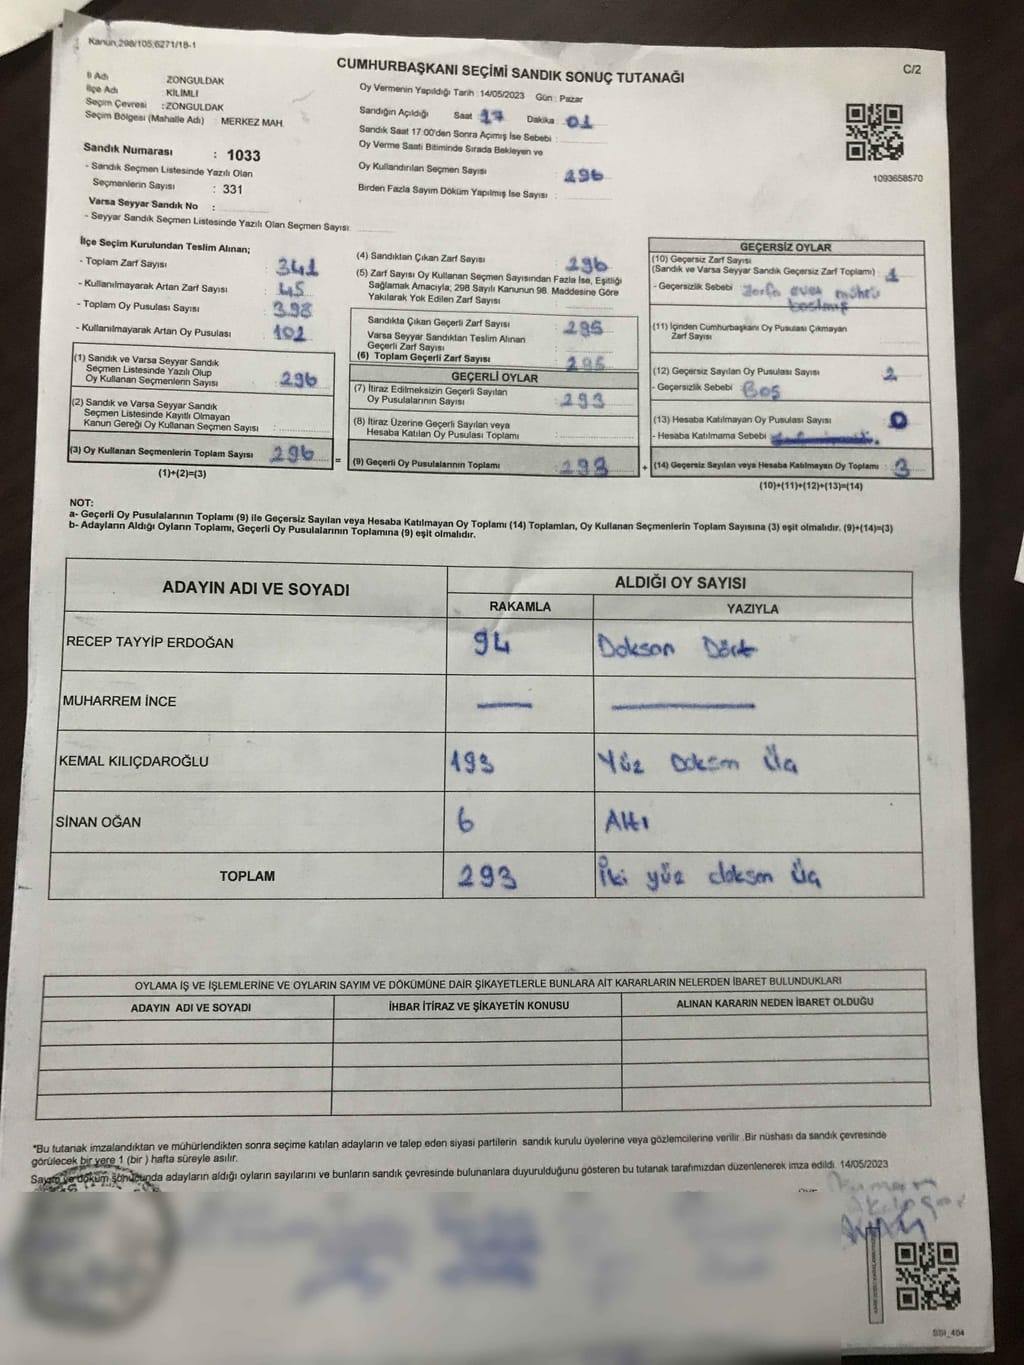 Kanun,298/105;6271/18-1
C/2
CUMHURBAŞKANI SEÇİMİ SANDIK SONUÇ TUTANAĞI
İl Adı ZONGULDAK
İlçe Adı KİLİMLİ
Seçim Çevresi : ZONGULDAK
Seçim Bölgesi (Mahalle Adı) : MERKEZ MAH.
Sandık Numarası : 1033
- Sandık Seçmen Listesinde Yazılı Olan
Seçmenlerin Sayısı : 331
Varsa Seyyar Sandık No :
- Seyyar Sandık Seçmen Listesinde Yazılı Olan Seçmen Sayısı:
Oy Vermenin Yapıldığı Tarih : 14/05/2023 Gün : Pazar
Sandığın Açıldığı Saat 17 Dakika : 01
Sandık Saat 17:00'den Sonra Açımış İse Sebebi :
Oy Verme Saati Bitiminde Sırada Bekleyen ve
Oy Kullandırılan Seçmen Sayısı : 296
Birden Fazla Sayım Döküm Yapılmış İse Sayısı :
1093658570
İlçe Seçim Kurulundan Teslim Alınan;
- Toplam Zarf Sayısı : 341
- Kullanılmayarak Artan Zarf Sayısı : 45
- Toplam Oy Pusulası Sayısı : 398
- Kullanılmayarak Artan Oy Pusulası : 102
(1) Sandık ve Varsa Seyyar Sandık
Seçmen Listesinde Yazılı Olup
Oy Kullanan Seçmenlerin Sayısı : 296
(2) Sandık ve Varsa Seyyar Sandık
Seçmen Listesinde Kayıtlı Olmayan
Kanun Gereği Oy Kullanan Seçmen Sayısı :
(3) Oy Kullanan Seçmenlerin Toplam Sayısı : 296 =
(1)+(2)=(3)
(4) Sandıktan Çıkan Zarf Sayısı : 296
(5) Zarf Sayısı Oy Kullanan Seçmen Sayısından Fazla İse, Eşitliği
Sağlamak Amacıyla; 298 Sayılı Kanunun 98. Maddesine Göre
Yakılarak Yok Edilen Zarf Sayısı :
Sandıkta Çıkan Geçerli Zarf Sayısı : 295
Varsa Seyyar Sandıktan Teslim Alınan
Geçerli Zarf Sayısı :
(6) Toplam Geçerli Zarf Sayısı : 295
GEÇERLİ OYLAR
(7) İtiraz Edilmeksizin Geçerli Sayılan
Oy Pusulalarının Sayısı : 293
(8) İtiraz Üzerine Geçerli Sayılan veya
Hesaba Katılan Oy Pusulası Toplamı :
(9) Geçerli Oy Pusulalarının Toplamı : 293 +
GEÇERSİZ OYLAR
(10) Geçersiz Zarf Sayısı
(Sandık ve Varsa Seyyar Sandık Geçersiz Zarf Toplamı) : 1
- Geçersizlik Sebebi : Zarfa evet mührü
basılmış
(11) İçinden Cumhurbaşkanı Oy Pusulası Çıkmayan
Zarf Sayısı :
(12) Geçersiz Sayılan Oy Pusulası Sayısı : 2
- Geçersizlik Sebebi : Boş
(13) Hesaba Katılmayan Oy Pusulası Sayısı : 0
- Hesaba Katılmama Sebebi :
(14) Geçersiz Sayılan veya Hesaba Katılmayan Oy Toplamı : 3
(10)+(11)+(12)+(13)=(14)
NOT:
a- Geçerli Oy Pusulalarının Toplamı (9) ile Geçersiz Sayılan veya Hesaba Katılmayan Oy Toplamı (14) Toplamları, Oy Kullanan Seçmenlerin Toplam Sayısına (3) eşit olmalıdır. (9)+(14)=(3)
b- Adayların Aldığı Oyların Toplamı, Geçerli Oy Pusulalarının Toplamına (9) eşit olmalıdır.
ADAYIN ADI VE SOYADI ALDIĞI OY SAYISI
RAKAMLA YAZIYLA
RECEP TAYYİP ERDOĞAN 94 Doksan Dört
MUHARREM İNCE
KEMAL KILIÇDAROĞLU 193 Yüz Doksan Üç
SİNAN OĞAN 6 Altı
TOPLAM 293 İki yüz doksan Üç
OYLAMA İŞ VE İŞLEMLERİNE VE OYLARIN SAYIM VE DÖKÜMÜNE DAİR ŞİKAYETLERLE BUNLARA AİT KARARLARIN NELERDEN İBARET BULUNDUKLARI
ADAYIN ADI VE SOYADI İHBAR İTİRAZ VE ŞİKAYETİN KONUSU ALINAN KARARIN NEDEN İBARET OLDUĞU
*Bu tutanak imzalandıktan ve mühürlendikten sonra seçime katılan adayların ve talep eden siyasi partilerin sandık kurulu üyelerine veya gözlemcilerine verilir .Bir nüshası da sandık çevresinde
görülecek bir yere 1 (bir ) hafta süreyle asılır.
Sayım ve döküm sonucunda adayların aldığı oyların sayılarını ve bunların sandık çevresinde bulunanlara duyurulduğunu gösteren bu tutanak tarafımızdan düzenlenerek imza edildi. 14/05/2023
SSI_404